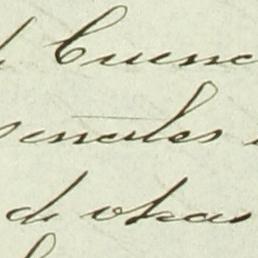 Cuenc
senales
de otras